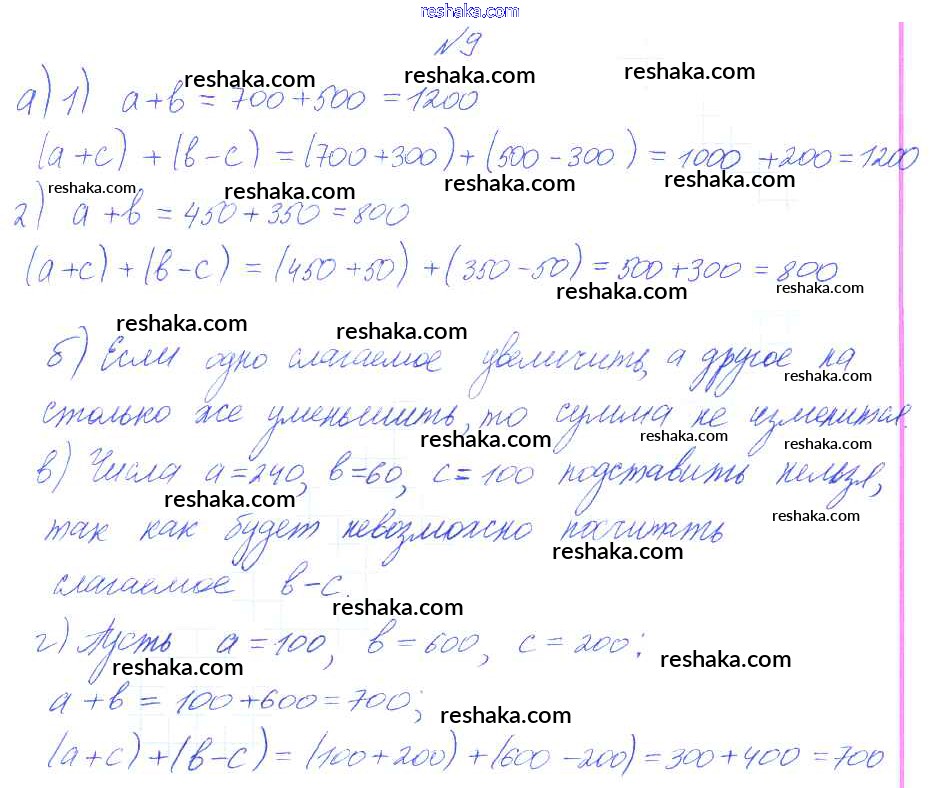 reshaka.com
№9
reshaka.com reshaka.com reshaka.com
а) 1) a+b = 700+500 = 1200
(a+c) + (b-c) = (700+300) + (500-300) = 1000 +200 = 1200
reshaka.com reshaka.com reshaka.com reshaka.com
2) a+b = 450+350 = 800
(a+c) + (b-c) = (450+50) + (350-50) = 500+300 = 800
reshaka.com reshaka.com
reshaka.com reshaka.com
б) Если одно слагаемое увеличить, а другое на
reshaka.com
столько же уменьшить, то сумма не изменится.
reshaka.com reshaka.com reshaka.com
в) Числа a=240, b=60, c=100 подставить нельзя,
reshaka.com reshaka.com
так как будет невозможно посчитать
reshaka.com
слагаемое b-c.
reshaka.com
г) Пусть a=100, b=600, c=200;
reshaka.com reshaka.com
a+b = 100+600=700;
reshaka.com
(a+c)+(b-c) = (100+200)+(600-200)=300+400=700